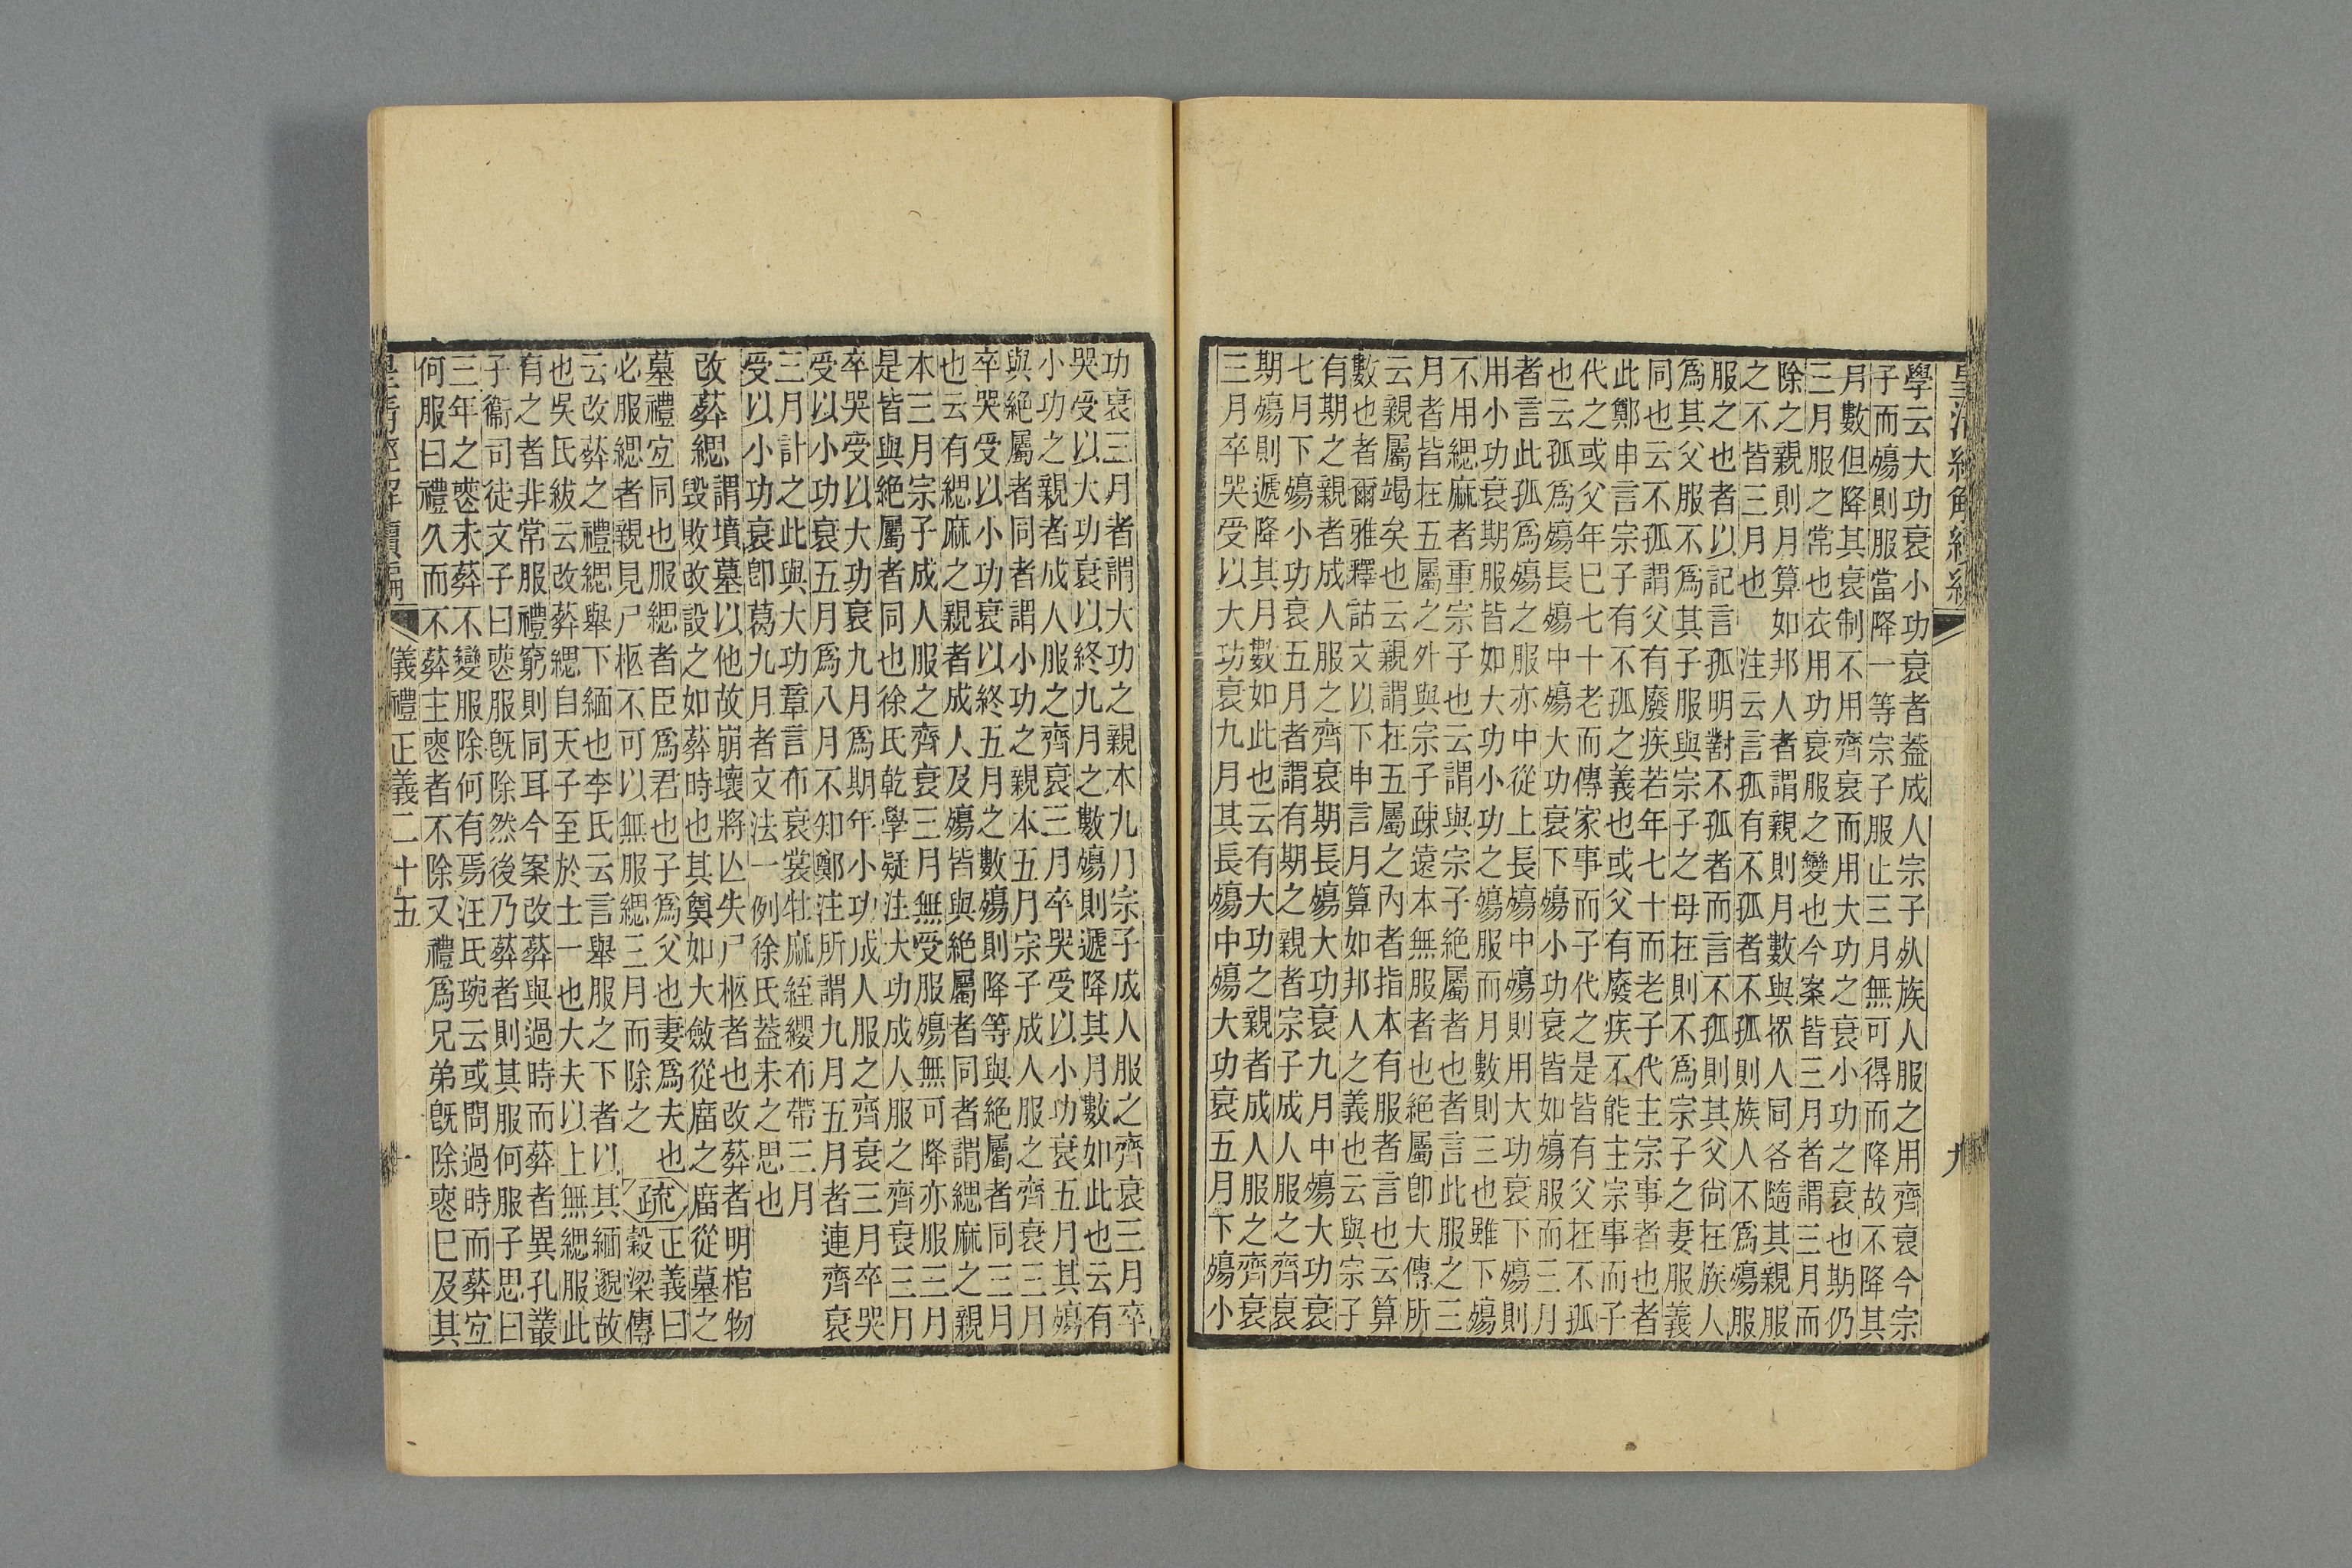 皇清經解續編
九
學云大功衰小功衰者葢成人宗子外族人服之用齊衰今宗
子而殤則服當降一等宗子服止三月無可得而降故不降其
月數但降其衰制不用齊衰而用大功之衰小功之衰也期仍
三月服之常也衣用功衰服之變也今案皆三月者謂三月而
除之親則月算如邦人者謂親則月數與眾人同各隨其親服
之不皆三月也 注云言孤有不孤者不孤則族人不爲殤服
服之也者以記言孤明對不孤者而言不孤則其父尙在族人
爲其父服不爲其子服與宗子之母在則不爲宗子之妻服義
同也云不孤謂父有廢疾若年七十而老子代主宗事者也者
此鄭申言宗子有不孤之義也或父有廢疾不能主宗事而子
代之或父年巳七十老而傳家事而子代之是皆有父在不孤
也云孤爲殤長殤中殤大功衰下殤小功衰皆如殤服而三月
者言此孤爲殤之服亦中從上長殤中殤則用大功衰下殤則
用小功衰期服皆如大功小功之殤服而月數則三也雖下殤
不用緦麻者重宗子也云謂與宗子絕屬者也者言此服之三
月者皆在五屬之外與宗子疎遠本無服者也絕屬卽大傳所
云親屬竭矣也云親謂在五屬之內者指本有服者言也云算
數也者爾雅釋詁文以下申言月算如邦人之義也云與宗子
有期之親者成人服之齊衰期長殤大功衰九月中殤大功衰
七月下殤小功衰五月者謂有期之親者宗子成人服之齊衰
期殤則遞降其月數如此也云有大功之親者成人服之齊衰
三月卒哭受以大功衰九月其長殤中殤大功衰五月下殤小
功衰三月者謂大功之親本九月宗子成人服之齊衰三月卒
哭受以大功衰以終九月之數殤則遞降其月數如此也云有
小功之親者成人服之齊衰三月卒哭受以小功衰五月其殤
與絕屬者同者謂小功之親本五月宗子成人服之齊衰三月
卒哭受以小功衰以終五月之數殤則降等與絕屬者同三月
也云有緦麻之親者成人及殤皆與絕屬者同者謂緦麻之親
本三月宗子成人服之齊衰三月無受服殤無可降亦服三月
是皆與絕屬者同也徐氏乾學疑注大功成人服之齊衰三月
卒哭受以大功衰九月爲期年小功成人服之齊衰三月卒哭
受以小功衰五月爲八月不知鄭注所謂九月五月者連齊衰
三月計之此與大功章言布衰裳牡麻絰纓布帶三月
受以小功衰卽葛九月者文法一例徐氏葢未之思也
改葬緦謂墳墓以他故崩壞將亾失尸柩者也改葬者明棺物
毀敗改設之如葬時也其奠如大斂從廟之廟從墓之
墓禮宜同也服緦者臣爲君也子爲父也妻爲夫也
必服緦者親見尸柩不可以無服緦三月而除之
疏正義曰
穀梁傳
云改葬之禮緦舉下緬也李氏云言舉服之下者以其緬邈故
也吳氏紱云改葬緦自天子至於士一也大夫以上無緦服此
有之者非常服禮窮則同耳今案改葬與過時而葬者異孔叢
子衞司徒文子曰䘮服旣除然後乃葬者則其服何服子思曰
三年之䘮未葬不變服除何有焉汪氏琬云或問過時而葬宜
何服曰禮久而不葬主䘮者不除又禮爲兄弟旣除䘮巳及其
皇清經解續編
儀禮正義二十五